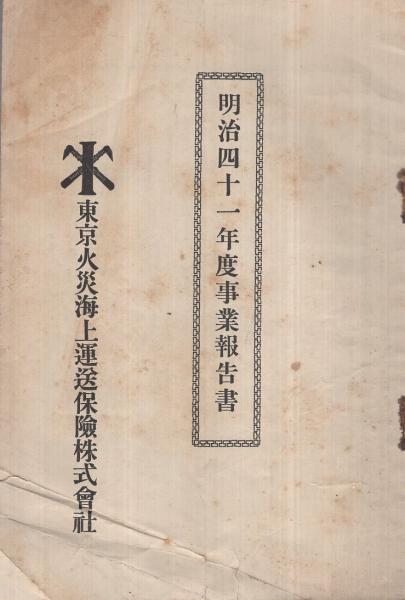 明治四十一年度事業報告書
東京火災海上運送保險株式會社